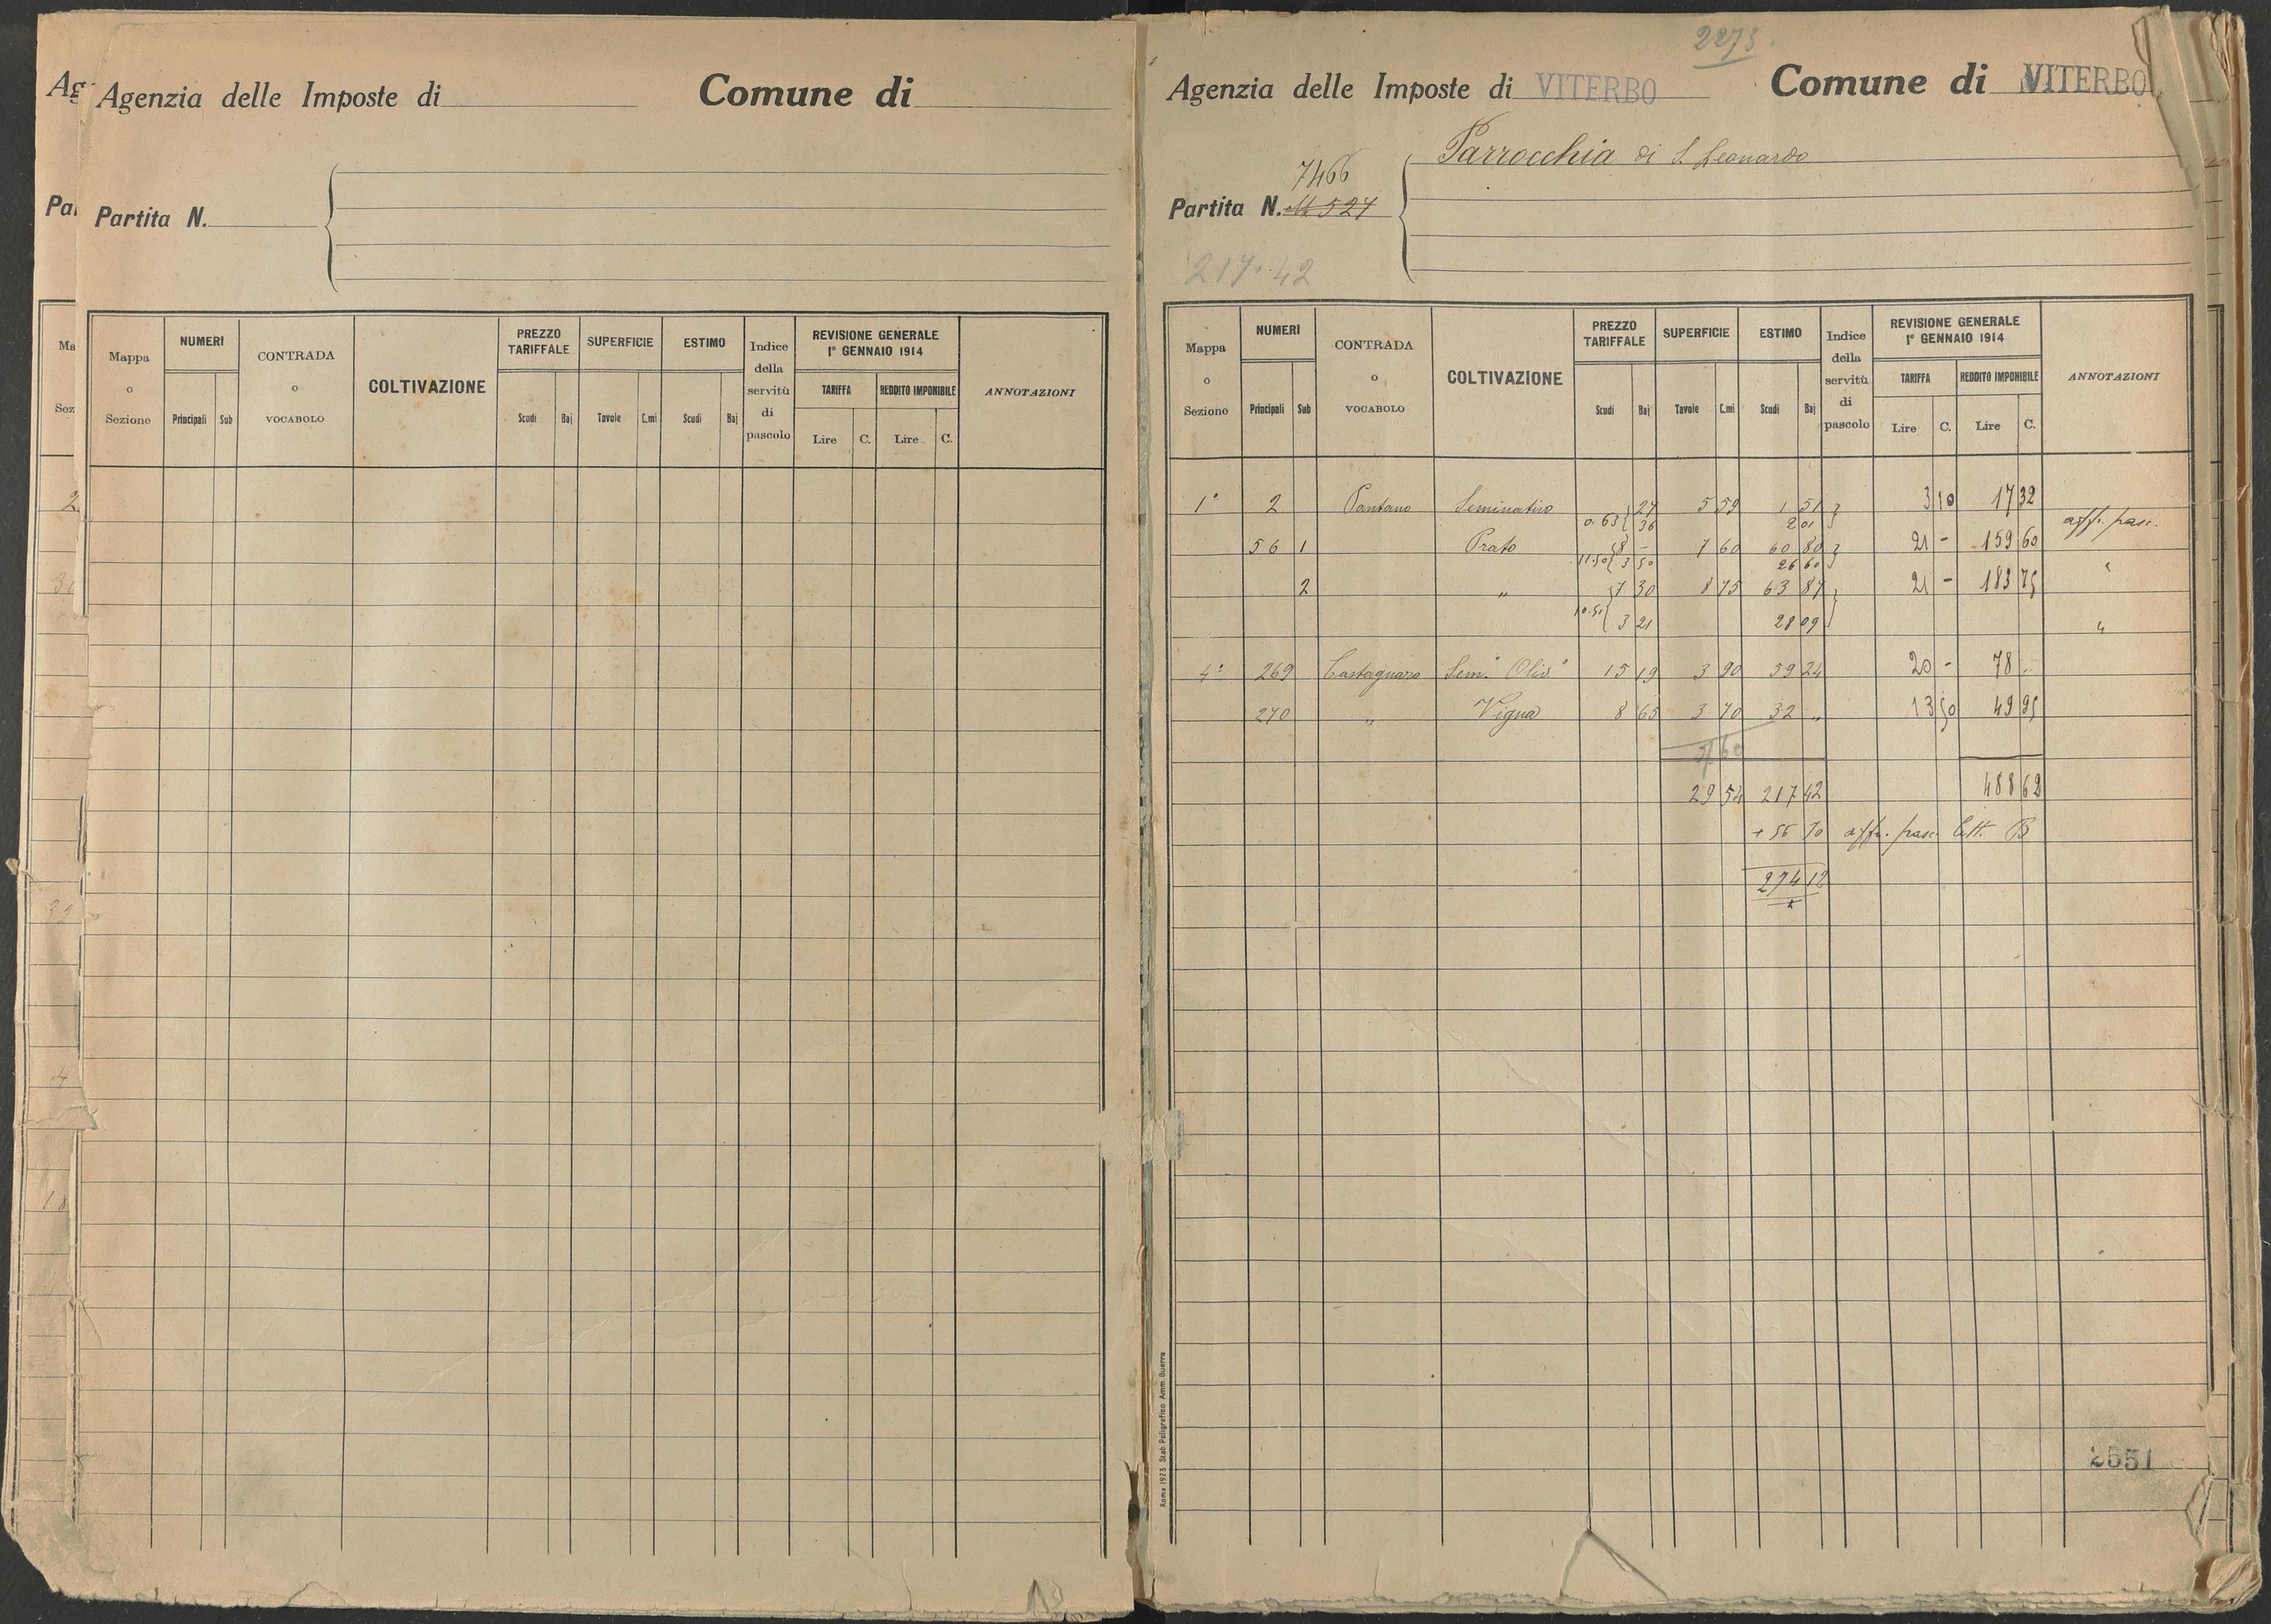 Agenzia delle Imposte di
Comune di
Partita N.
Mappa o Sezione
NUMERI
Principali Sub
CONTRADA o VOCABOLO
COLTIVAZIONE
PREZZO TARIFFALE
Scudi Baj
SUPERFICIE
Tavole C.mi
ESTIMO
Scudi Baj
Indice della servitù di pascolo
REVISIONE GENERALE
1° GENNAIO 1914
TARIFFA
Lire C.
REDDITO IMPONIBILE
Lire C.
ANNOTAZIONI
2273.
Agenzia delle Imposte di VITERBO
Comune di VITERBO
Parrocchia di S. Leonardo
7466
Partita N.
217.42
Mappa o Sezione
NUMERI
Principali Sub
CONTRADA o VOCABOLO
COLTIVAZIONE
PREZZO TARIFFALE
Scudi Baj
SUPERFICIE
Tavole C.mi
ESTIMO
Scudi Baj
Indice della servitù di pascolo
REVISIONE GENERALE
1° GENNAIO 1914
TARIFFA
Lire C.
REDDITO IMPONIBILE
Lire C.
ANNOTAZIONI
1ª 2 Pantano Seminativo 27 5 59 1 51 3 10 17 32
0.63 36 2 01 aff. pasc.
56 1 Prato 8 - 7 60 60 80 21 - 159 60
11.50 3 50 26 60 "
2 " 7 30 8 75 63 87 21 - 183 75
10.51 3 21 28 09 "
4ª 269 Castagnaro Sem.° Oliv° 15 19 3 90 59 24 20 - 78 -
270 " Vigna 8 65 3 70 32 " 13 50 49 95
7 60
29 54 217 42 488 62
+ 56 70 aff. pasc. lett. B
274 12
Roma 1923 Stab. Poligrafico Amm. Guerra
2551